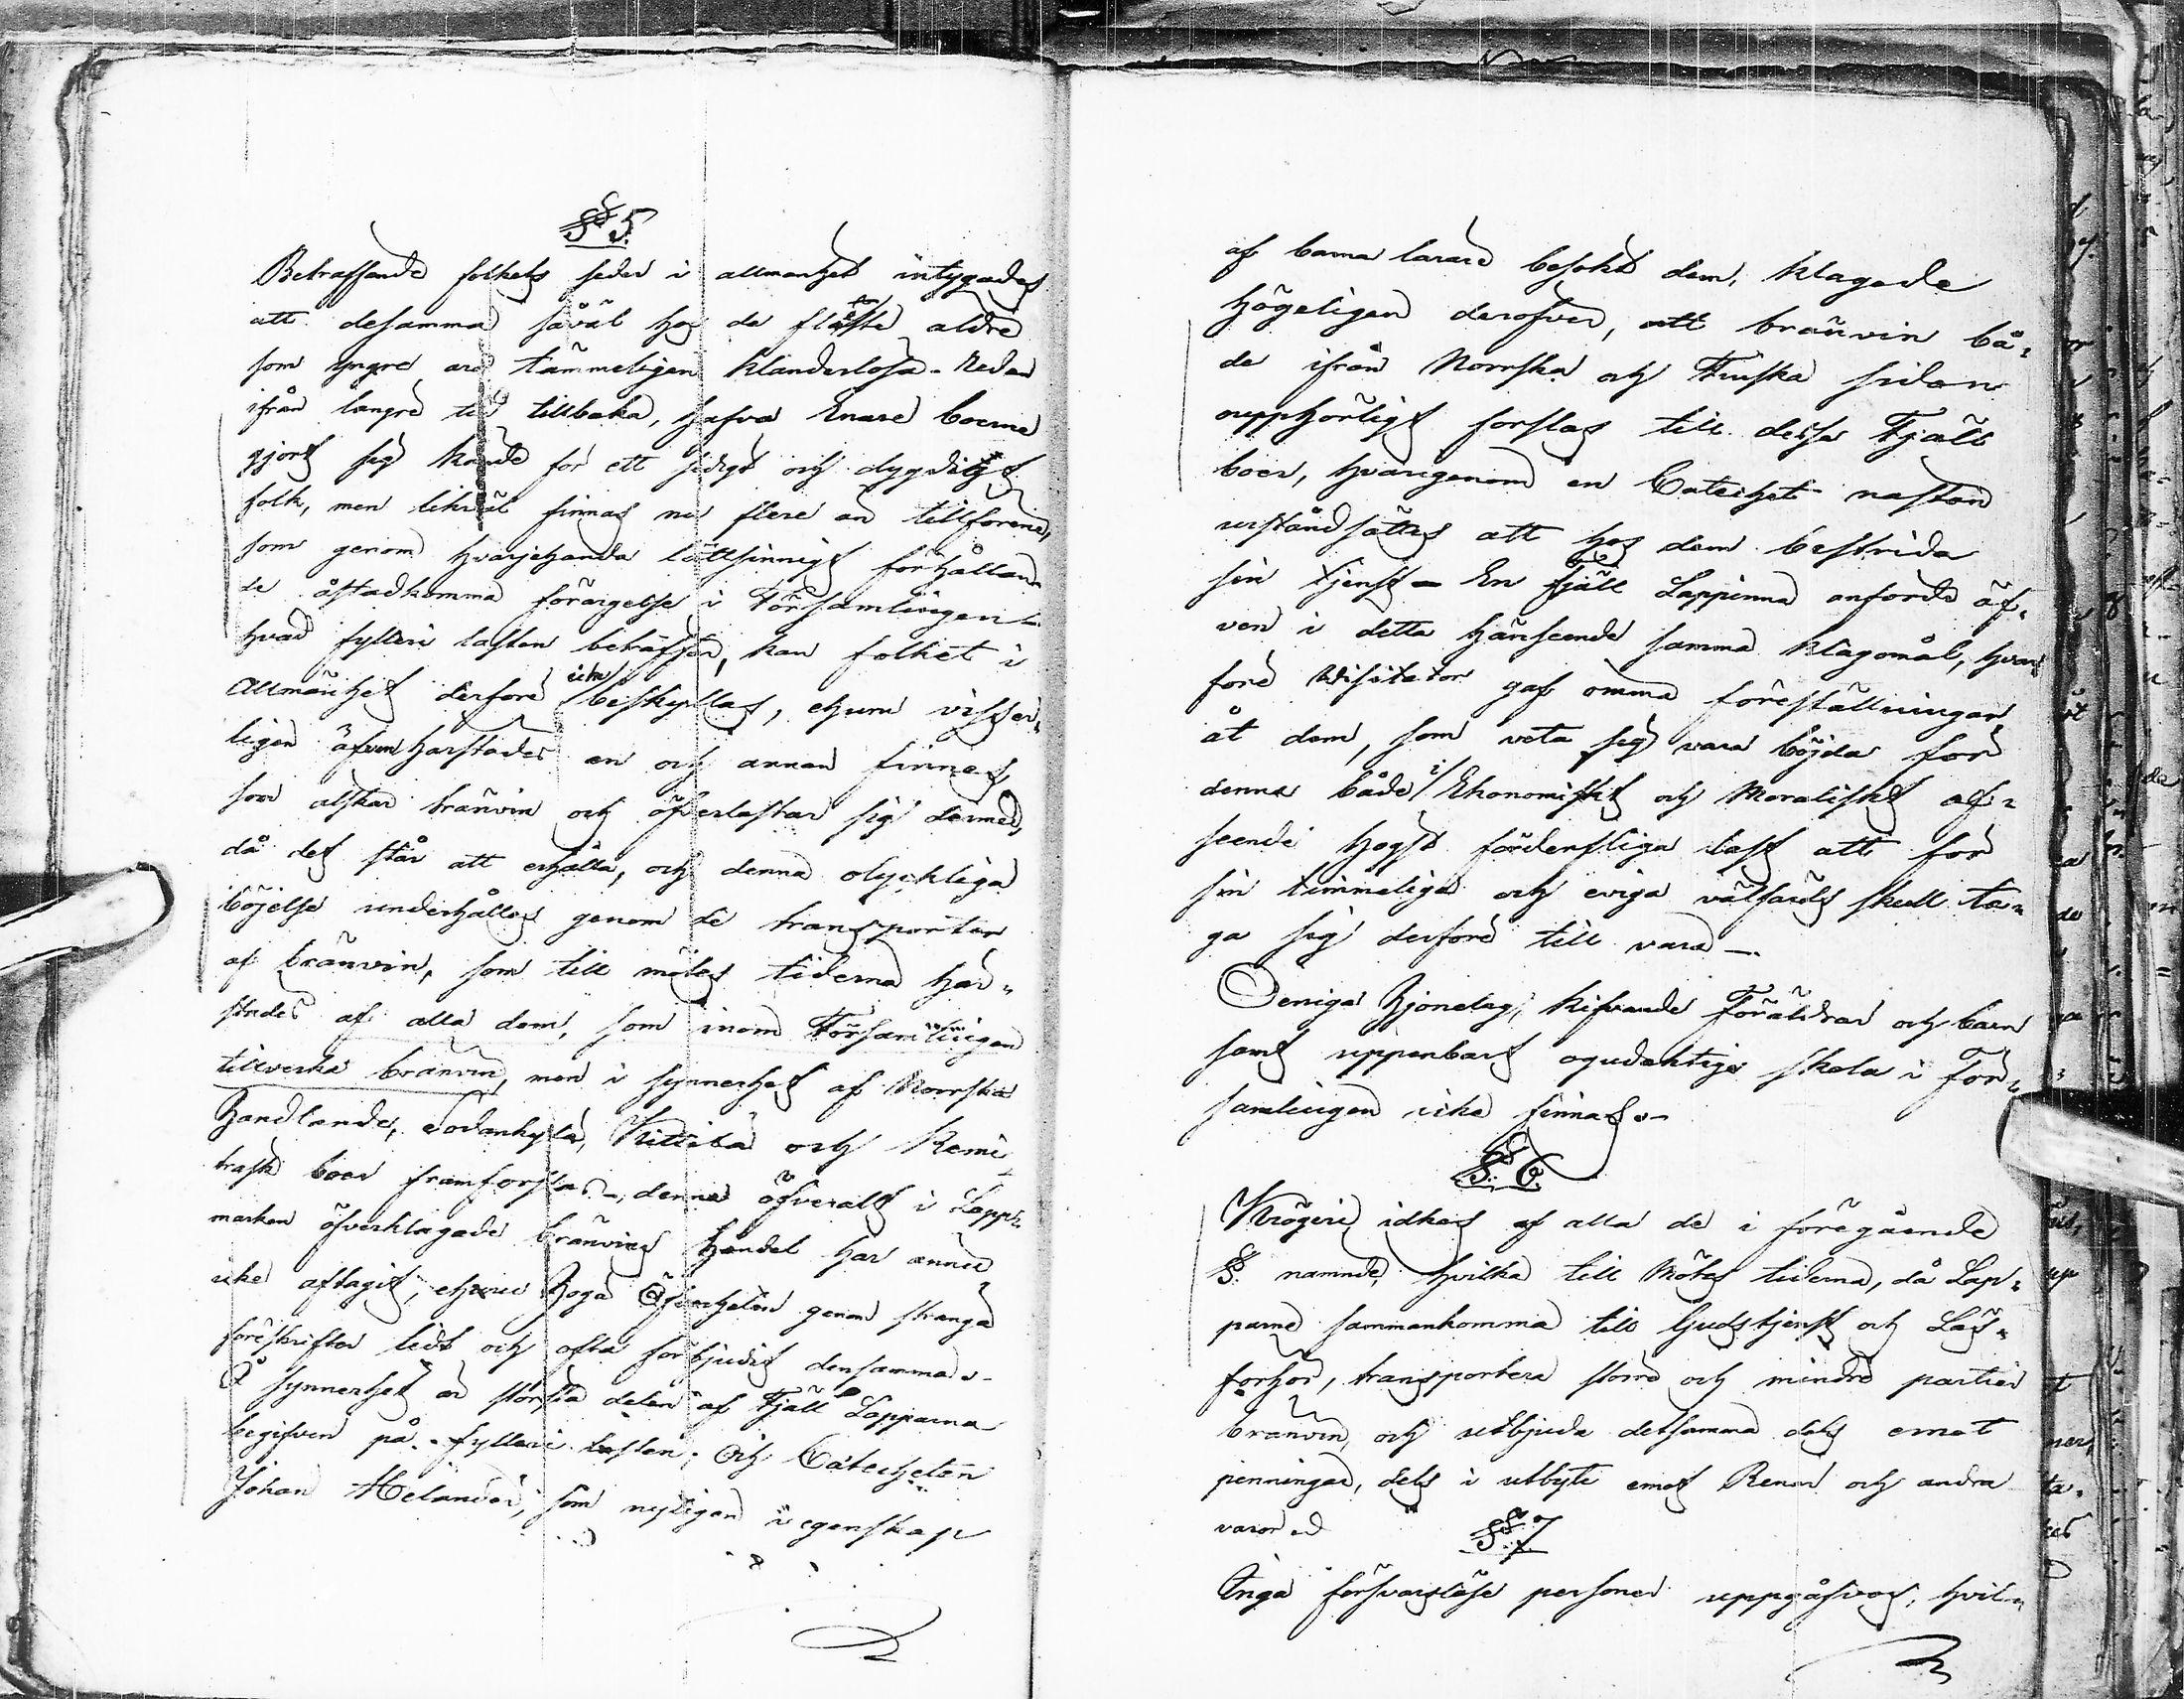 § 5.
Beträffande folkets seder i allmänhet intygades
att desamma såväl hos de fläste äldre
som yngre äro tämmeligen klanderlösa - Redan
ifrån längre tid tillbaka, hafva Enare boerne
gjort sig kände för ett sedigt och dygdigt
folk, men likväl finnas nu flere än tillförene,
som genom hvarjehanda lättsinnigt förhållan-
de åstadkomma förargelse i Församlingen -
hvad fylleri lasten beträffar, kan folket i
Allmänhet derföre icke beskyllas, ehuru visser-
ligen äfven härstädes en och annan finnes,
som älskar bränvin och öfverlastar sig dermed,
då det står att erhålla, och denna olyckliga
böjelse underhålles genom de transporter
af bränvin, som till mötes tiderna här-
städes af alla dem, som inom Församlingen
tillverka bränvin, men i synnerhet af Norrska
Handlande, Sodankylä, Kittilä och Kemi
träsk boer framforslas -, denna öfveralt i Lapp-
marken öfverklagade bränvins handel har ännu
icke aftagit, ehuru Höga Öfverheten genom stränga
föreskrifter tidt och ofta förbjudit densamma -
I synnerhet är största delen af Fjäll Lapparna
begifven på fylleri lasten; Och Catecheten
Johan Helander, som nyligen i egenskap
af barna lärare besökt dem, klagade
högeligen deröfver, att bränvin bå-
de ifrån Norrska och Finska sidan
oupphörligt forslas till dessa Fjäll
boer, hvarigenom en Catechet nästan
urståndsättes att hos dem bestrida
sin tjenst - En fjäll Lappinna anförde äf-
ven i detta hänseende samma klagomål, hvar-
före Visitator gaf ömma föreställningar
åt dem, som veta sig vara böjda för
denna både i Ekonomiskt och Moraliskt af-
seende högst förderfliga last att för
sin timmeliga och eviga välfärds skull ta-
ga sig derföre till vara -
Oeniga Hjonelag, kifvande Föräldrar och barn
samt uppenbart ogudaktige skola i För-
samlingen icke finnas -
§ 6.
Krögeri idkas af alla de i föregående
§. nämnde, hvilka till Mötes tiderna, då Lap-
parne sammankomma till Gudstjenst och Läs-
förhör, transportera större och mindre partier
bränvin, och utbjuda detsamma dels emot
penningar, dels i utbyte emot Renar och andra
varor
§ 7
Inga försvarslöse personer uppgåfvos, hvil-